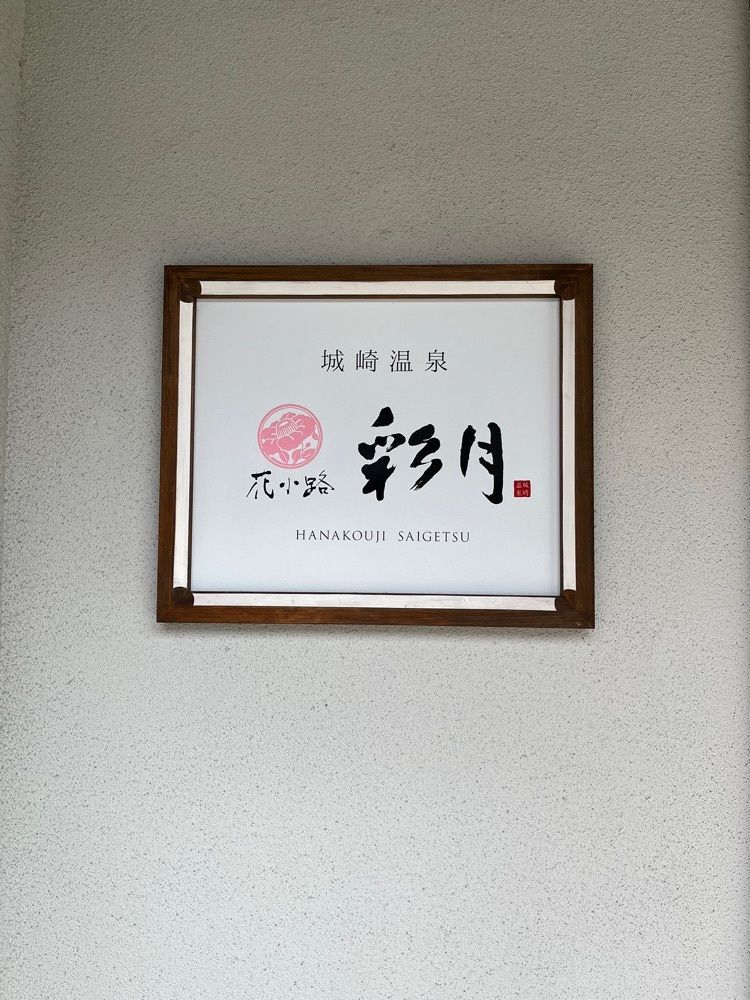 城崎温泉
花小路 彩月
城崎温泉
HANAKOUJI SAIGETSU